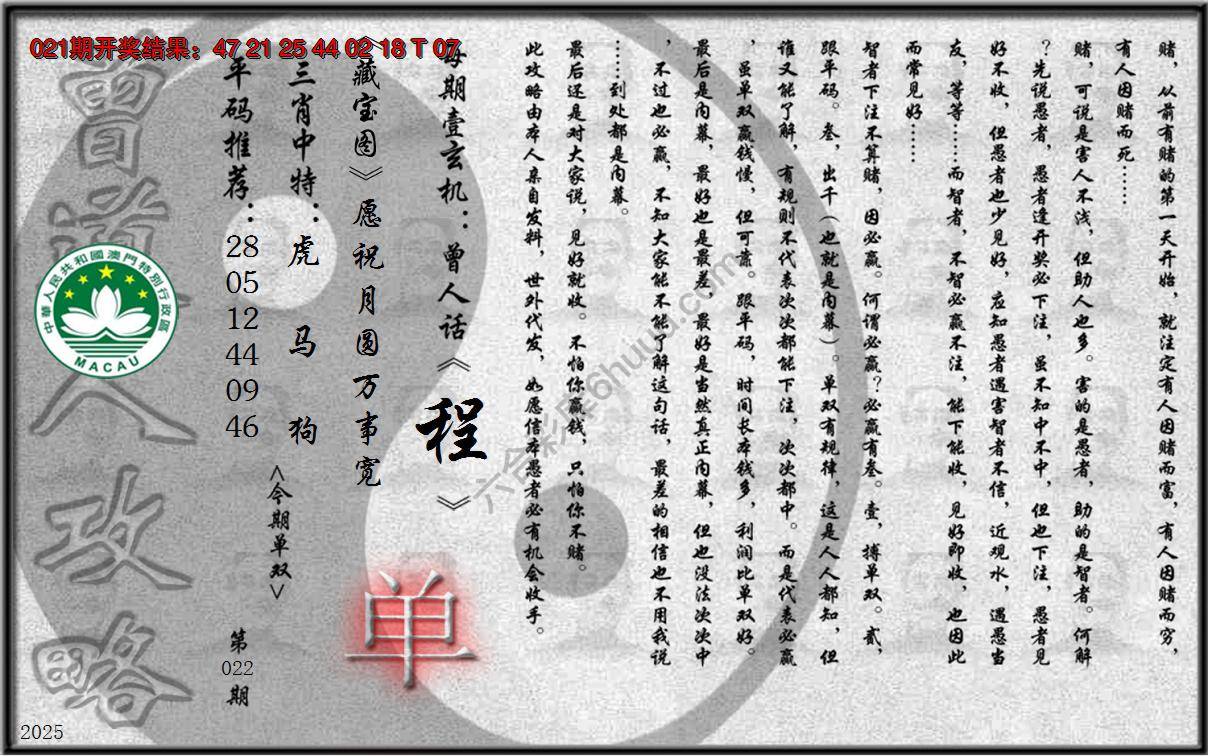 021期开奖结果：47 21 25 44 02 18 T 07
赌，从前有赌的第一天开始，就注定有人因赌而富，有人因赌而穷，
有人因赌而死……
赌，可说是害人不浅，但助人也多。害的是愚者，助的是智者。何解
？先说愚者，愚者逢开奖必下注，虽不知中不中，但也下注，愚者见
好不收，但愚者也少见好，应知愚者遇害智者不信，近观水，遇愚当
友，等等……而智者，不智必赢不注，能下能收，见好即收，也因此
而常见好……
智者下注不算赌，因必赢。何谓必赢？必赢有叁。壹，搏单双。贰，
跟平码。叁，出千（也就是内幕）。单双有规律，这是人人都知，但
谁又能了解，有规则不代表次次都能下注，次次都中。而是代表必赢
，虽单双赢钱慢，但可靠。跟平码，时间长本钱多，利润比单双好。
最后是内幕，最好也是最差，最好是当然真正内幕，但也没法次次中
，不过也必赢，不知大家能不能了解这句话，最差的相信也不用我说
……到处都是内幕。
最后还是对大家说，见好就收。不怕你赢钱，只怕你不赌。
此攻略由本人亲自发料，世外代发，如愿信本愚者必有机会收手。
每期壹玄机：曾人话《程》
《藏宝图》愿祝月圆万事宽
单
三肖中特：虎 马 狗
<今期单双>
平码推荐：28 05 12 44 09 46
第022期
曾道人攻略
中華人民共和國澳門特別行政區
MACAU
六合彩库6huuu.com
2025